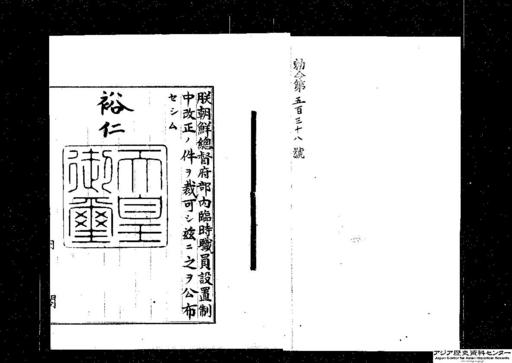 勅令第五百三十八號
朕朝鮮總督府部内臨時職員設置制
中改正ノ件ヲ裁可シ茲ニ之ヲ公布
セシム
裕仁
天皇
御璽
内
閣
アジア歴史資料センター
Japan Center for Asian Historical Records